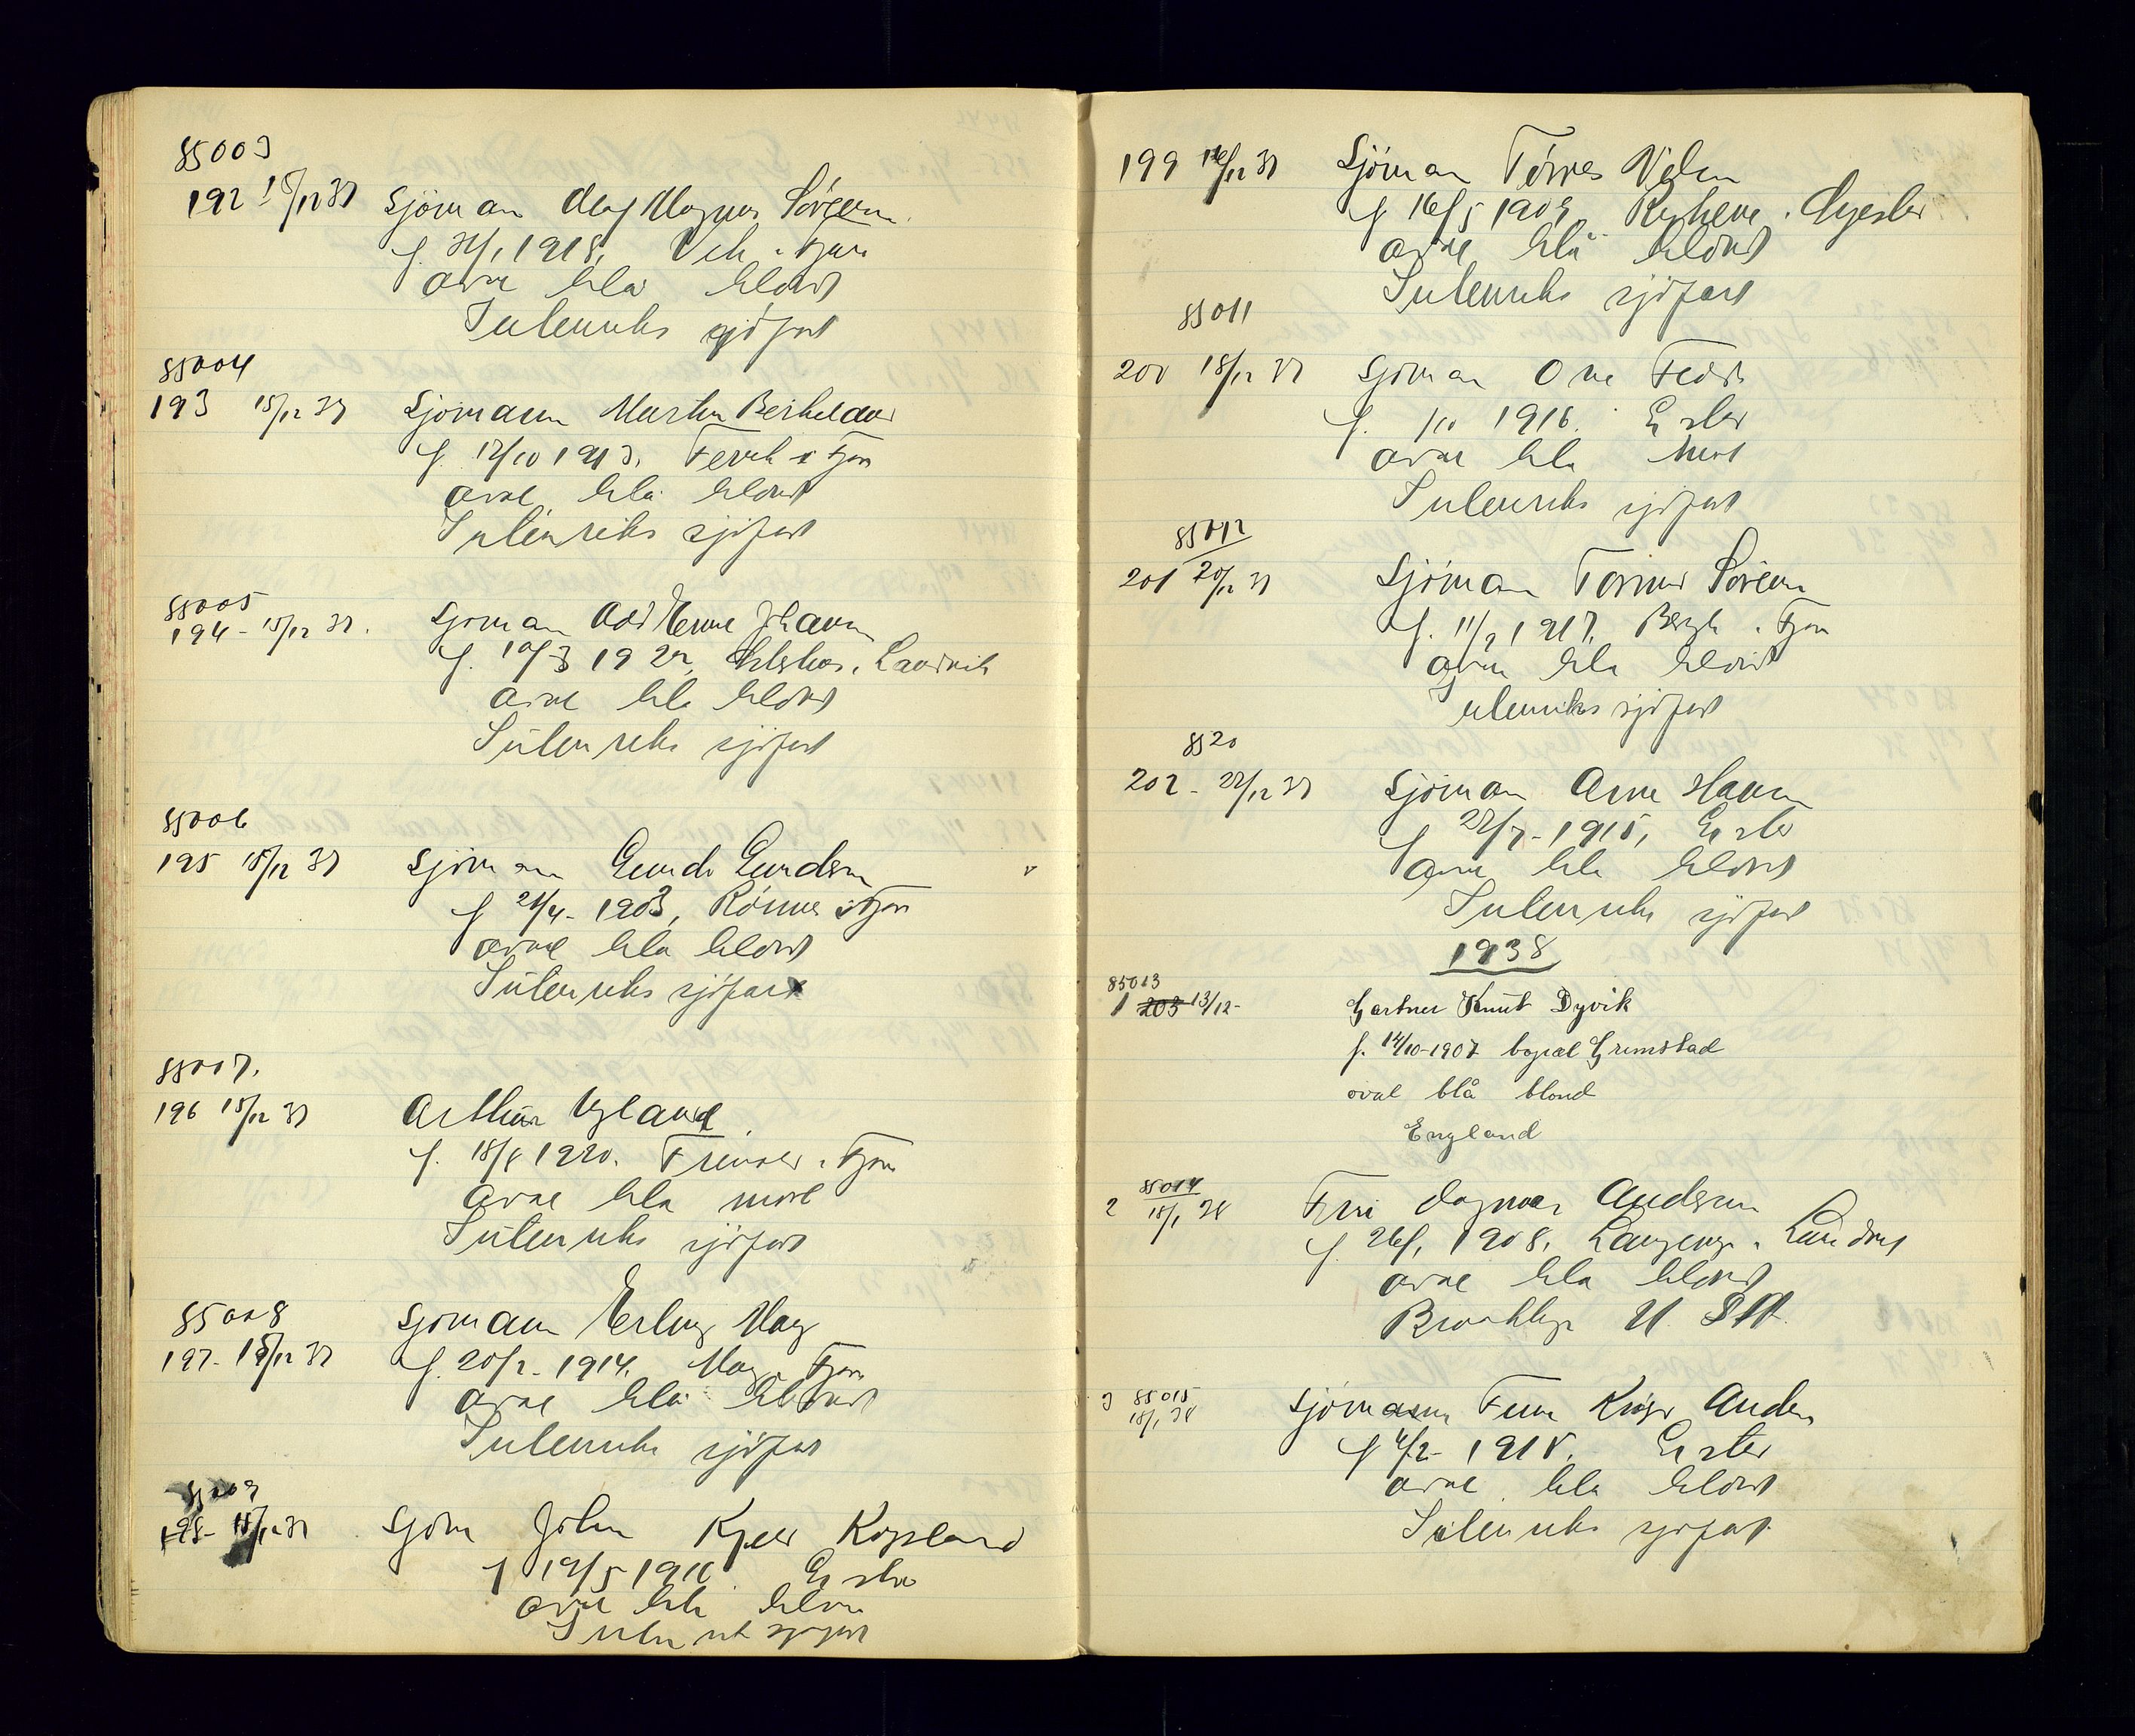 85003
192 15/12 37 Sjömann Olaf Magnus Sörensen
f. 31/1 1918, Vik i Fjære
oval blå blond
Innenriks sjöfart
85004
193 15/12 37 Sjömann Martin Bertheldsen
f. 17/10 1913. Fevik i Fjære
oval blå blond
Innenriks sjöfart
85005
194 - 15/12 37. Sjömann Odd Johansen
f. 10/3 1922, Landvik
oval blå blond
Innenriks sjöfart
85006
195 15/12 37 Sjömann Gunder Gundersen
f 21/4 - 1903, Rönnes i Fjære
oval blå blond
Innenriks sjöfart
85007.
196 15/12 37 Arthur Ugland
f. 18/8 1920. i Fjære
oval blå mörk
Innenriks sjöfart
85008
197 - 15/12 37 Sjömann Erling Moy
f. 20/2 - 1914. Moy i Fjære
oval blå blond
Innenriks sjöfart
85009
198 - 15/12 37 Sjöm John Kopsland
f 19/5 1916. Gr.stad
oval blå blond
Innenriks sjöfart
199 16/12 37 Sjömann Törres
f 16/5 1909, i Øyestad
oval blå blond
Innenriks sjöfart
85011
200 18/12 37 Sjömann Ove
f. /10 1916. Gr.stad
oval blå mörk
Innenriks sjöfart
85012
201 20/12 37 Sjömann Sörensen
f. 11/2 1917. i Fjære
oval blå blond
Innenriks sjöfart
8520
202 - 22/12 37 Sjömann Arne Hansen
f 22/7 - 1915, Gr.stad
oval blå blond
Innenriks sjöfart
1938
85013
1 203 13/12 - Gartner Knut Dyvik
f. 14/10-1907 bopæl Grimstad
oval blå blond
England
85014
2 18/1 38 Fru Dagmar Andersen
f 26/1 1908, i Landvik
oval blå blond
Brooklyn U.S.A.
85015
3 18/1 38 Sjömann Finn Andersen
f 4/2 - 1918. Gr.stad
oval blå blond
Innenriks sjöfart